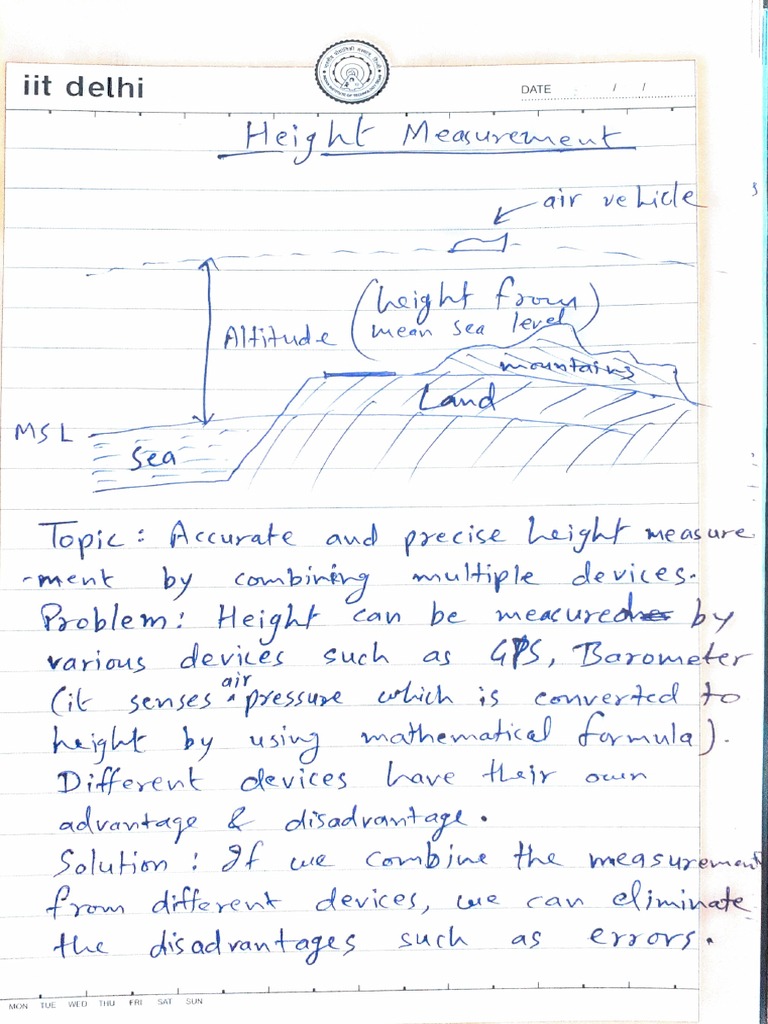 iit delhi
DATE / /
Height Measurement
air vehicle
(height from
Altitude mean sea level)
mountains
Land
MSL
Sea
Topic: Accurate and precise height measure
-ment by combining multiple devices.
Problem: Height can be measured by
various devices such as GPS, Barometer
(it senses air pressure which is converted to
height by using mathematical formula).
Different devices have their own
advantage & disadvantage.
Solution: If we combine the measurement
from different devices, we can eliminate
the disadvantages such as errors.
MON TUE WED THU FRI SAT SUN